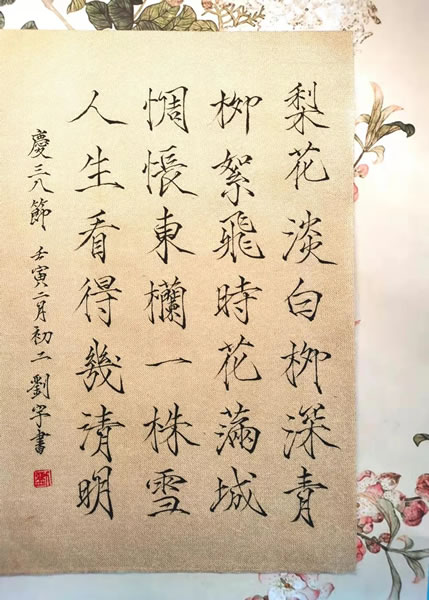 梨花淡白柳深青
柳絮飛時花滿城
惆悵東欄一株雪
人生看得幾清明
慶三八節 壬寅二月初二 劉宇書